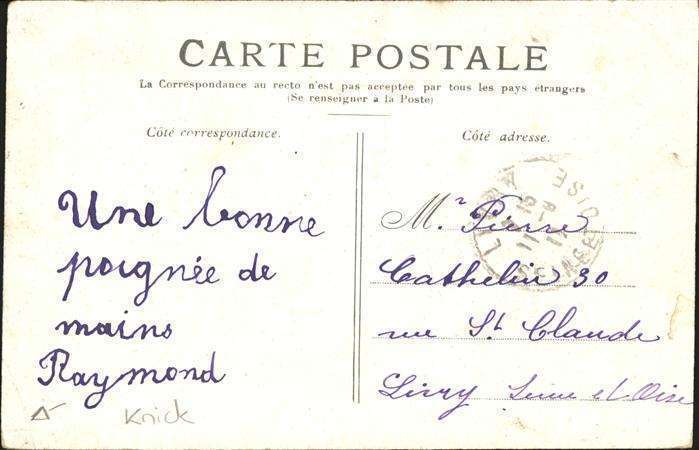 CARTE POSTALE
La Correspondance au recto n'est pas acceptée par tous les pays étrangers
(Se renseigner à la Poste)
Côté correspondance.
Une bonne
poignée de
mains
Raymond
Knick
Côté adresse.
Mr. Pierre
Cathelin 30
rue St Claude
Livry Seine et Oise